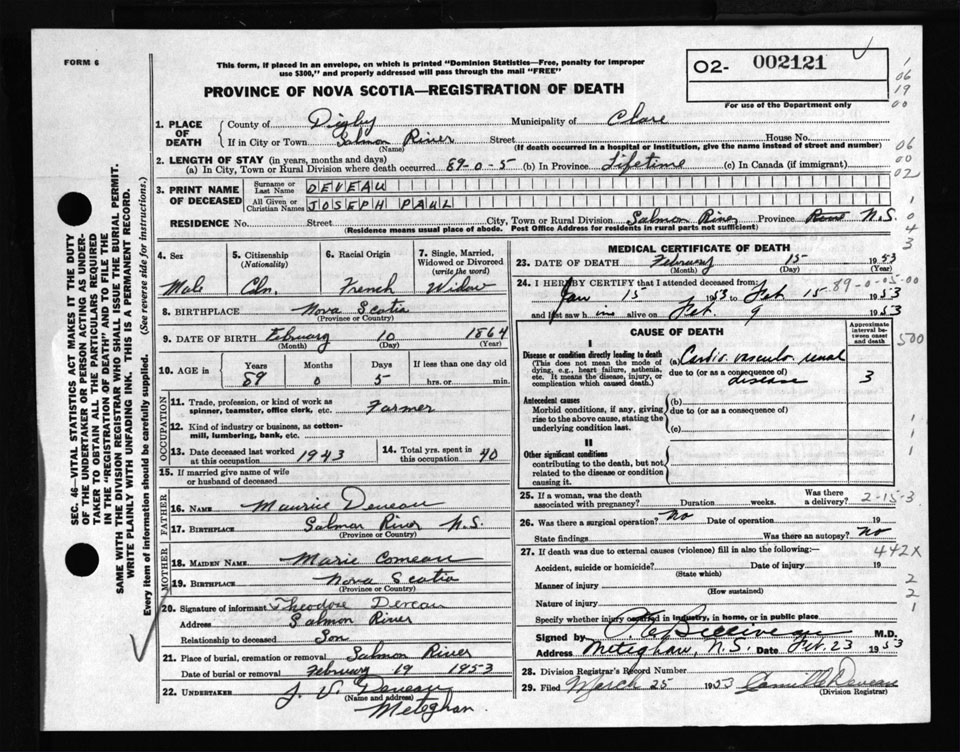 FORM 6
This form, if placed in an envelope, on which is printed "Dominion Statistics—Free, penalty for improper
use $300," and properly addressed will pass through the mail "FREE"
O2- 002121
For use of the Department only
PROVINCE OF NOVA SCOTIA—REGISTRATION OF DEATH
1. PLACE OF DEATH
County of Digby Municipality of Clare
If in City or Town Salmon River Street House No.
(Name) (If death occurred in a hospital or institution, give the name instead of street and number)
2. LENGTH OF STAY (in years, months and days)
(a) In City, Town or Rural Division where death occurred 89-0-5 (b) In Province Lifetime (c) In Canada (if immigrant)
3. PRINT NAME OF DECEASED
Surname or Last Name DEVEAU
All Given or Christian Names JOSEPH PAUL
RESIDENCE No. Street City, Town or Rural Division Salmon River Province N.S.
(Residence means usual place of abode. Post Office Address for residents in rural parts not sufficient)
4. Sex
Male
5. Citizenship
(Nationality)
Cdn.
6. Racial Origin
French
7. Single, Married,
Widowed or Divorced
(write the word)
Widow
8. BIRTHPLACE Nova Scotia
(Province or Country)
9. DATE OF BIRTH February 10 1864
(Month) (Day) (Year)
10. AGE in
Years Months Days If less than one day old
89 0 5 hrs. or min.
OCCUPATION
11. Trade, profession, or kind of work as
spinner, teamster, office clerk, etc. Farmer
12. Kind of industry or business, as cotten-
mill, lumbering, bank, etc.
13. Date deceased last worked
at this occupation 1943
14. Total yrs. spent in
this occupation 40
15. If married give name of wife
or husband of deceased
FATHER
16. Name Maurice Deveau
17. Birthplace Salmon River N.S.
(Province or Country)
MOTHER
18. MAIDEN NAME Marie Comeau
19. BIRTHPLACE Nova Scotia
(Province or Country)
20. Signature of informant Theodore Deveau
Address Salmon River
Relationship to deceased Son
21. Place of burial, cremation or removal Salmon River
Date of burial or removal February 19 1953
22. UNDERTAKER J. V. Deveau
(Name and address)
Meteghan
MEDICAL CERTIFICATE OF DEATH
23. DATE OF DEATH February 15 1953
(Month) (Day) (Year)
24. I HEREBY CERTIFY that I attended deceased from: 89-0-05-00
Jan 15 1953 to Feb 15 1953
and last saw h im alive on Feb. 9 1953
CAUSE OF DEATH
Approximate interval between onset and death
I
Disease or condition directly leading to death
(This does not mean the mode of
dying, e.g., heart failure, asthenia,
etc. It means the disease, injury, or
complication which caused death.)
(a) Cardio vascular renal
due to (or as a consequence of)
disease 3
Antecedent causes
Morbid conditions, if any, giving
rise to the above cause, stating the
underlying condition last.
(b)
due to (or as a consequence of)
(c)
II
Other significant conditions
contributing to the death, but not
related to the disease or condition
causing it.
25. If a woman, was the death
associated with pregnancy? Duration weeks. Was there
a delivery? 2-15-3
26. Was there a surgical operation? No Date of operation 19
State findings Was there an autopsy? No
27. If death was due to external causes (violence) fill in also the following:— 442X
Accident, suicide or homicide? Date of injury 19
(State which)
Manner of injury
(How sustained)
Nature of injury
Specify whether injury occurred in industry, in home, or in public place
Signed by M.D.
Address Meteghan, N.S. Date Feb. 23 1953
28. Division Registrar's Record Number
29. Filed March 25 1953 Camille Deveau
(Division Registrar)
SEC. 46—VITAL STATISTICS ACT MAKES IT THE DUTY
OF THE UNDERTAKER OR PERSON ACTING AS UNDER-
TAKER TO OBTAIN ALL THE PARTICULARS REQUIRED
IN THE "REGISTRATION OF DEATH" AND TO FILE THE
SAME WITH THE DIVISION REGISTRAR WHO SHALL ISSUE THE BURIAL PERMIT.
WRITE PLAINLY WITH UNFADING INK. THIS IS A PERMANENT RECORD.
Every item of information should be carefully supplied. (See reverse side for instructions.)
1
06
19
00
06
00
02
1
0
0
4
3
500
1
1
1
2
2
1